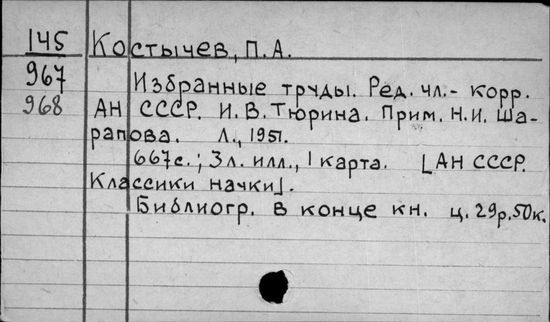 145 Костычев, П.А.
967 Избранные труды. Ред. чл.- корр.
968 АН СССР. И.В. Тюрина. Прим. Н.И. Ша-
рапова. Л., 1951.
667 с.; 3 л. илл., 1 карта. [АН СССР.
Классики науки].
Библиогр. в конце кн. ц. 29р.50к.